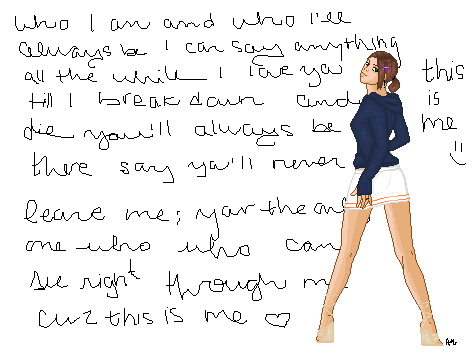 who I am and who I'll
always be I can say anything
all the while I love you
till I break down and
die you'll always be
there say ya'll never
leave me; your the only
one who who can
see right through m
cuz this is me ♡
this
is
me
:)